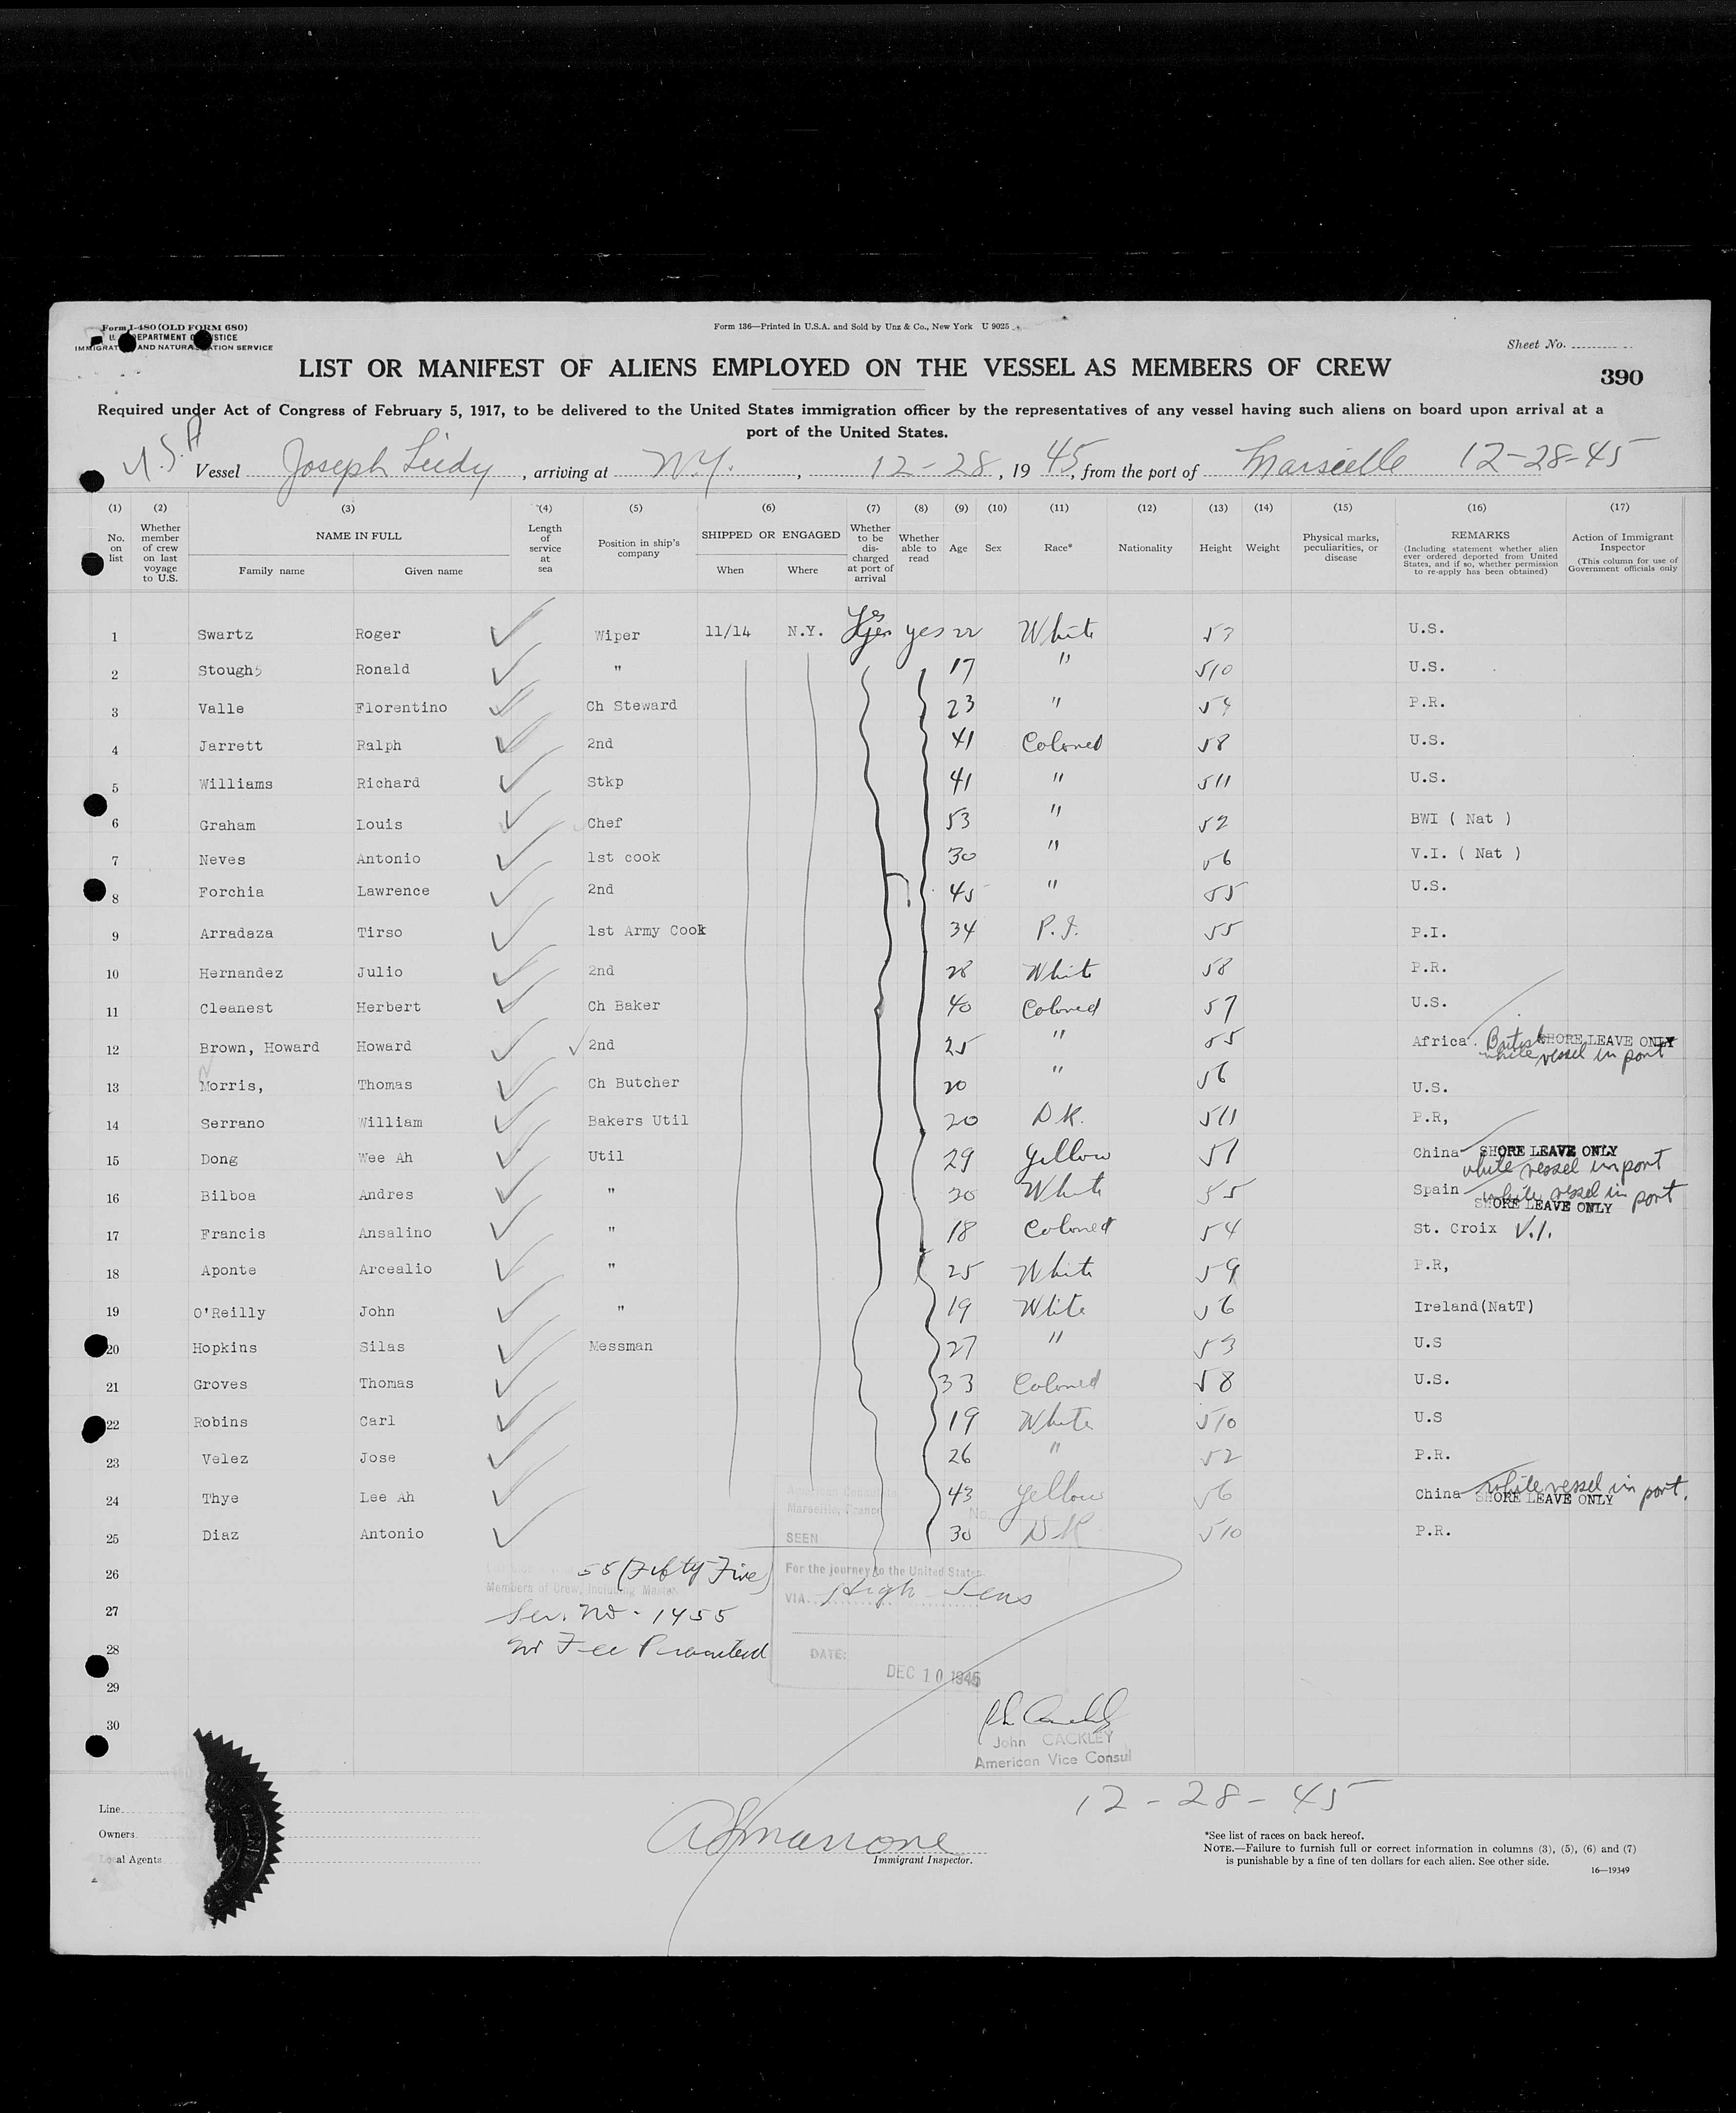 Form I-480 (OLD FORM 680)
U. S. DEPARTMENT OF JUSTICE
IMMIGRATION AND NATURALIZATION SERVICE
Form 136—Printed in U.S.A. and Sold by Unz & Co., New York U 9025
Sheet No.
LIST OR MANIFEST OF ALIENS EMPLOYED ON THE VESSEL AS MEMBERS OF CREW
390
Required under Act of Congress of February 5, 1917, to be delivered to the United States immigration officer by the representatives of any vessel having such aliens on board upon arrival at a
port of the United States.
U.S.A Vessel Joseph Leidy, arriving at N.Y., 12-28, 1945, from the port of Marseille 12-28-45
(1) (2) (3) (4) (5) (6) (7) (8) (9) (10) (11) (12) (13) (14) (15) (16) (17)
No. on list
Whether member of crew on last voyage to U.S.
NAME IN FULL
Family name Given name
Length of service at sea
Position in ship's company
SHIPPED OR ENGAGED
When Where
Whether to be discharged at port of arrival
Whether able to read
Age Sex Race* Nationality Height Weight
Physical marks, peculiarities, or disease
REMARKS
(Including statement whether alien ever ordered deported from United States, and if so, whether permission to re-apply has been obtained)
Action of Immigrant Inspector
(This column for use of Government officials only
1 Swartz Roger Wiper 11/14 N.Y. Yes yes 22 White 53 U.S.
2 Stough Ronald " 17 " 510 U.S.
3 Valle Florentino Ch Steward 23 " 54 P.R.
4 Jarrett Ralph 2nd 41 Colored 58 U.S.
5 Williams Richard Stkp 41 " 511 U.S.
6 Graham Louis Chef 53 " 52 BWI ( Nat )
7 Neves Antonio 1st cook 30 " 56 V.I. ( Nat )
8 Forchia Lawrence 2nd 45 " 55 U.S.
9 Arradaza Tirso 1st Army Cook 34 P.I. 55 P.I.
10 Hernandez Julio 2nd 28 White 58 P.R.
11 Cleanest Herbert Ch Baker 40 Colored 57 U.S.
12 Brown, Howard Howard 2nd 25 " 55 Africa. British SHORE LEAVE ONLY
while vessel in port
13 Morris, Thomas Ch Butcher 20 " 56 U.S.
14 Serrano William Bakers Util 20 D.K. 511 P.R,
15 Dong Wee Ah Util 29 Yellow 51 China SHORE LEAVE ONLY
while vessel in port
16 Bilboa Andres " 20 White 55 Spain while vessel in port
SHORE LEAVE ONLY
17 Francis Ansalino " 18 Colored 54 St. Croix V.I.
18 Aponte Arcealio " 25 White 59 P.R,
19 O'Reilly John " 19 White 56 Ireland(NatT)
20 Hopkins Silas Messman 27 " 53 U.S
21 Groves Thomas 33 Colored 58 U.S.
22 Robins Carl 19 White 510 U.S
23 Velez Jose 26 " 52 P.R.
24 Thye Lee Ah 43 Yellow 56 China while vessel in port.
SHORE LEAVE ONLY
25 Diaz Antonio 30 DK 510 P.R.
26
27
28
29
30
American Consulate
Marseille, France
No.
SEEN
For the journey to the United States
VIA High Seas
DATE:
DEC 10 1945
55 (Fifty Five)
Members of Crew, Including Master
Ser. No. 1455
No Fee
John CACKLEY
American Vice Consul
12-28-45
Line
Owners
Local Agents
Immigrant Inspector.
*See list of races on back hereof.
NOTE.—Failure to furnish full or correct information in columns (3), (5), (6) and (7)
is punishable by a fine of ten dollars for each alien. See other side.
16—19349